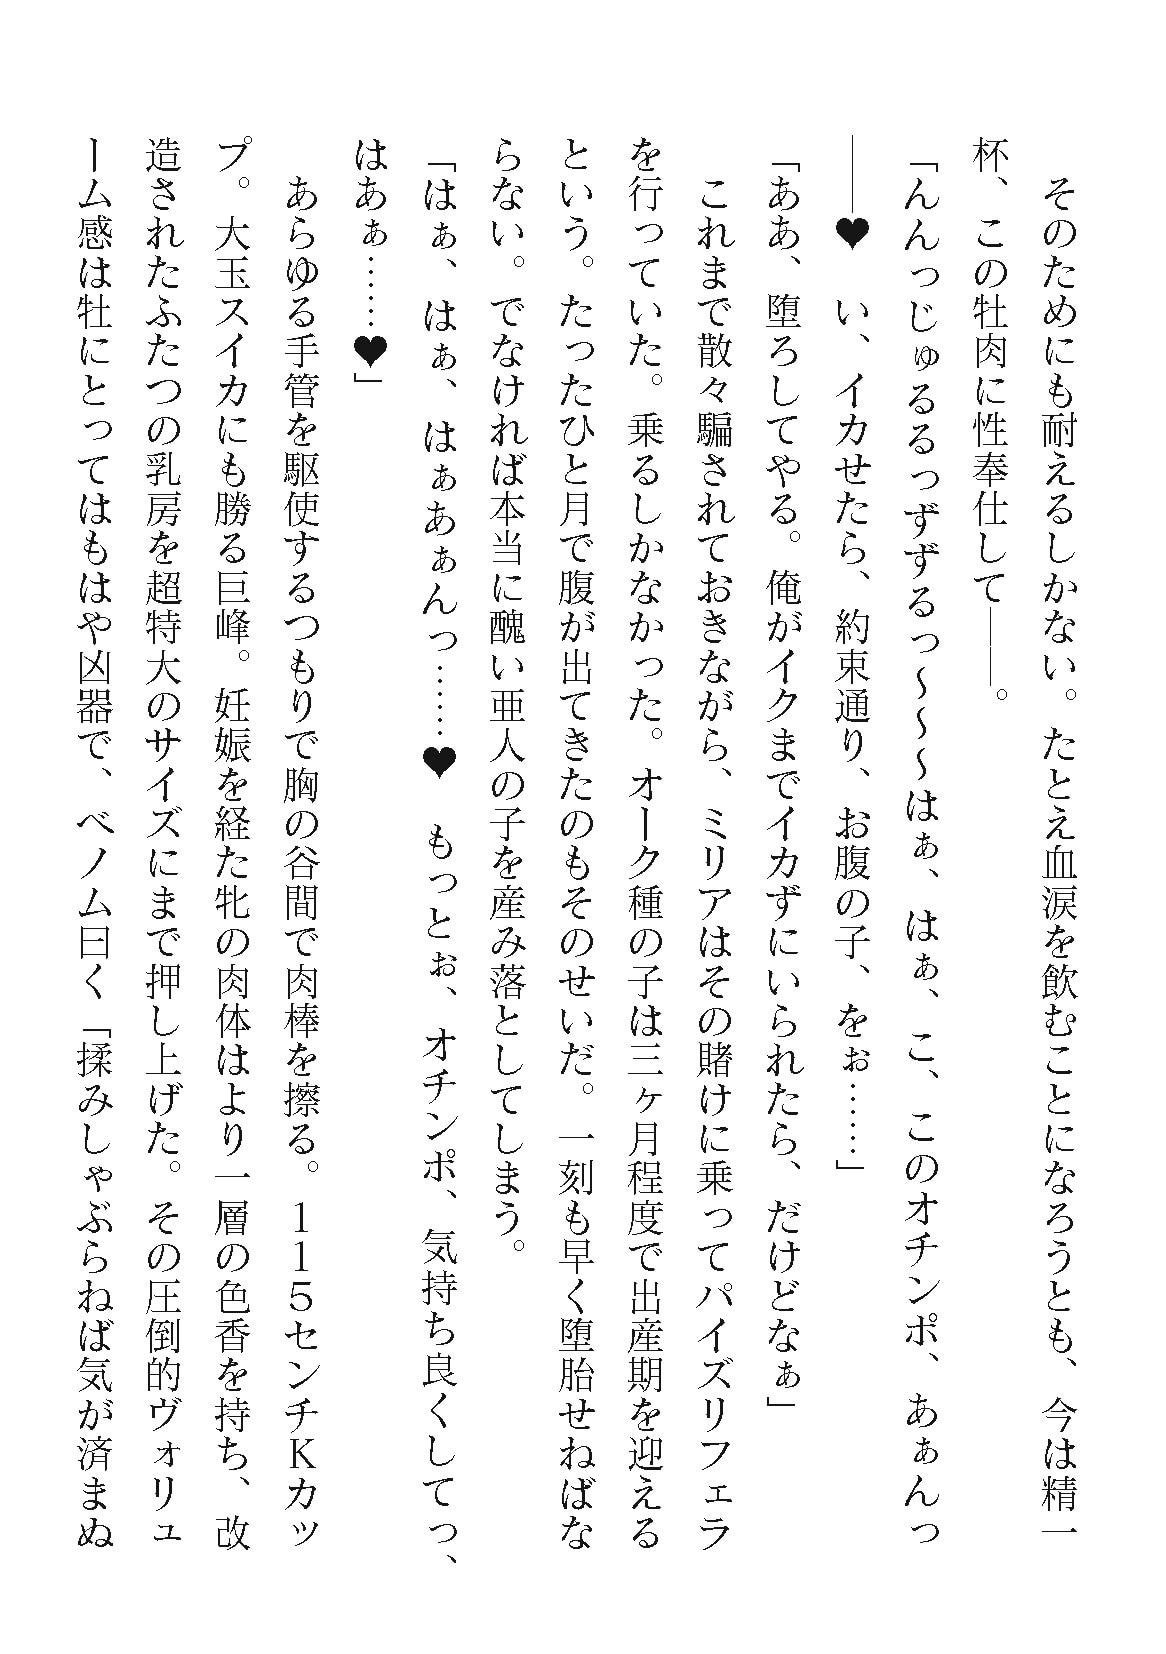 そのためにも耐えるしかない。たとえ血涙を飲むことになろうとも、今は精一
杯、この牡肉に性奉仕して――。
「んんっじゅるるっずずるっ～～～はぁ、はぁ、こ、このオチンポ、あぁんっ
――♥　い、イカせたら、約束通り、お腹の子、をぉ……」
「ああ、堕ろしてやる。俺がイクまでイカずにいられたら、だけどなぁ」
　これまで散々騙されておきながら、ミリアはその賭けに乗ってパイズリフェラ
を行っていた。乗るしかなかった。オーク種の子は三ヶ月程度で出産期を迎える
という。たったひと月で腹が出てきたのもそのせいだ。一刻も早く堕胎せねばな
らない。でなければ本当に醜い亜人の子を産み落としてしまう。
「はぁ、はぁ、はぁあぁんっ……♥　もっとぉ、オチンポ、気持ち良くしてっ、
はあぁ……♥」
　あらゆる手管を駆使するつもりで胸の谷間で肉棒を擦る。１１５センチＫカッ
プ。大玉スイカにも勝る巨峰。妊娠を経た牝の肉体はより一層の色香を持ち、改
造されたふたつの乳房を超特大のサイズにまで押し上げた。その圧倒的ヴォリュ
ーム感は牡にとってはもはや凶器で、ベノム曰く「揉みしゃぶらねば気が済まぬ